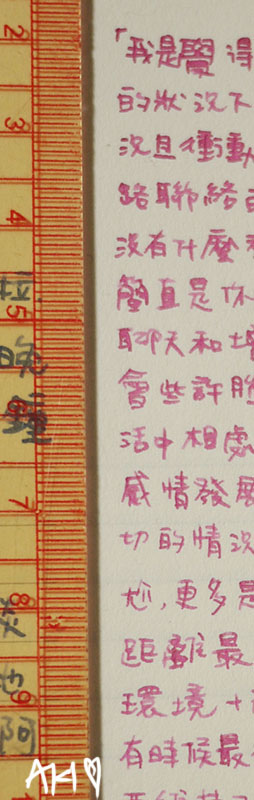 「我是覺得
的狀況下
況且衝動
路聯絡
沒有什麼
簡直是你
聊天和
會些許
活中相處
感情發展
切的情況
尬,更多是
距離最
環境+
有時候最
2
3
4
5
7
8
9
晚
鐘
阿
AH♡